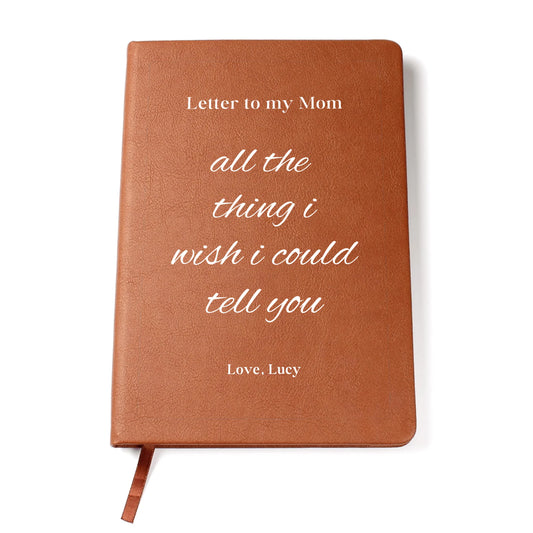 Letter to my Mom
all the
thing i
wish i could
tell you
Love, Lucy